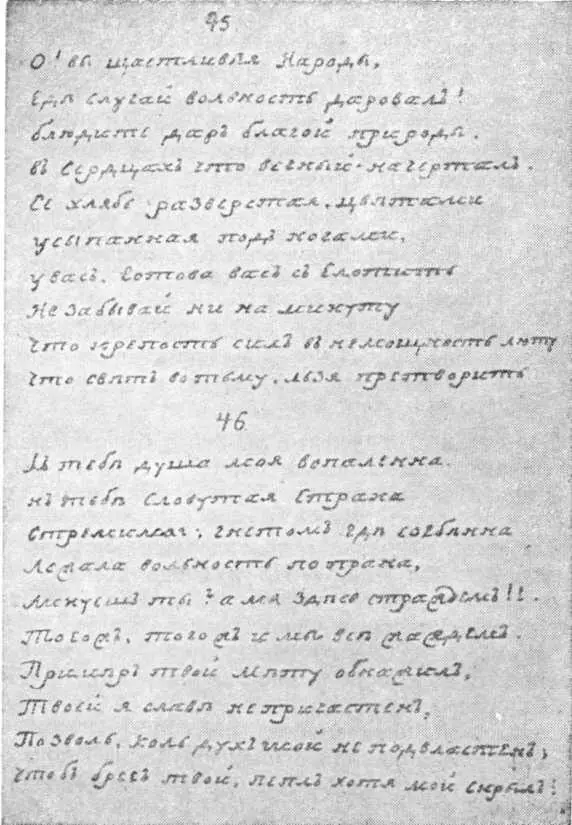 45
О! вы щастливыя Народы,
гдѣ случай вольность даровалъ!
блюдите даръ благой природы.
въ Сердцахъ что вечный начерталъ.
Се хлябь разверстая, цвѣтами
усыпанная подъ ногами,
у васъ. готова васъ сглотить
Не забывай ни на минуту
Что крепость силъ въ немощность люту
Что свѣтъ во тьму, льзя претворить
46
Къ тебѣ душа моя вспаленна.
къ тебѣ Словутая Страна
Стремится; гнетомъ гдѣ согбенна
Лежала вольность попрана,
Ликуешъ ты! а мы здѣсь страждемъ!!.
Тогожъ, тогожъ и мы всѣ жаждемъ.
Примѣръ твой мѣту обнажилъ,
Твоей я славѣ непричастенъ,
Позволь, коль духъ мой неподвластенъ,
Чтобъ брегъ твой, пепль хотя мой скрылъ!